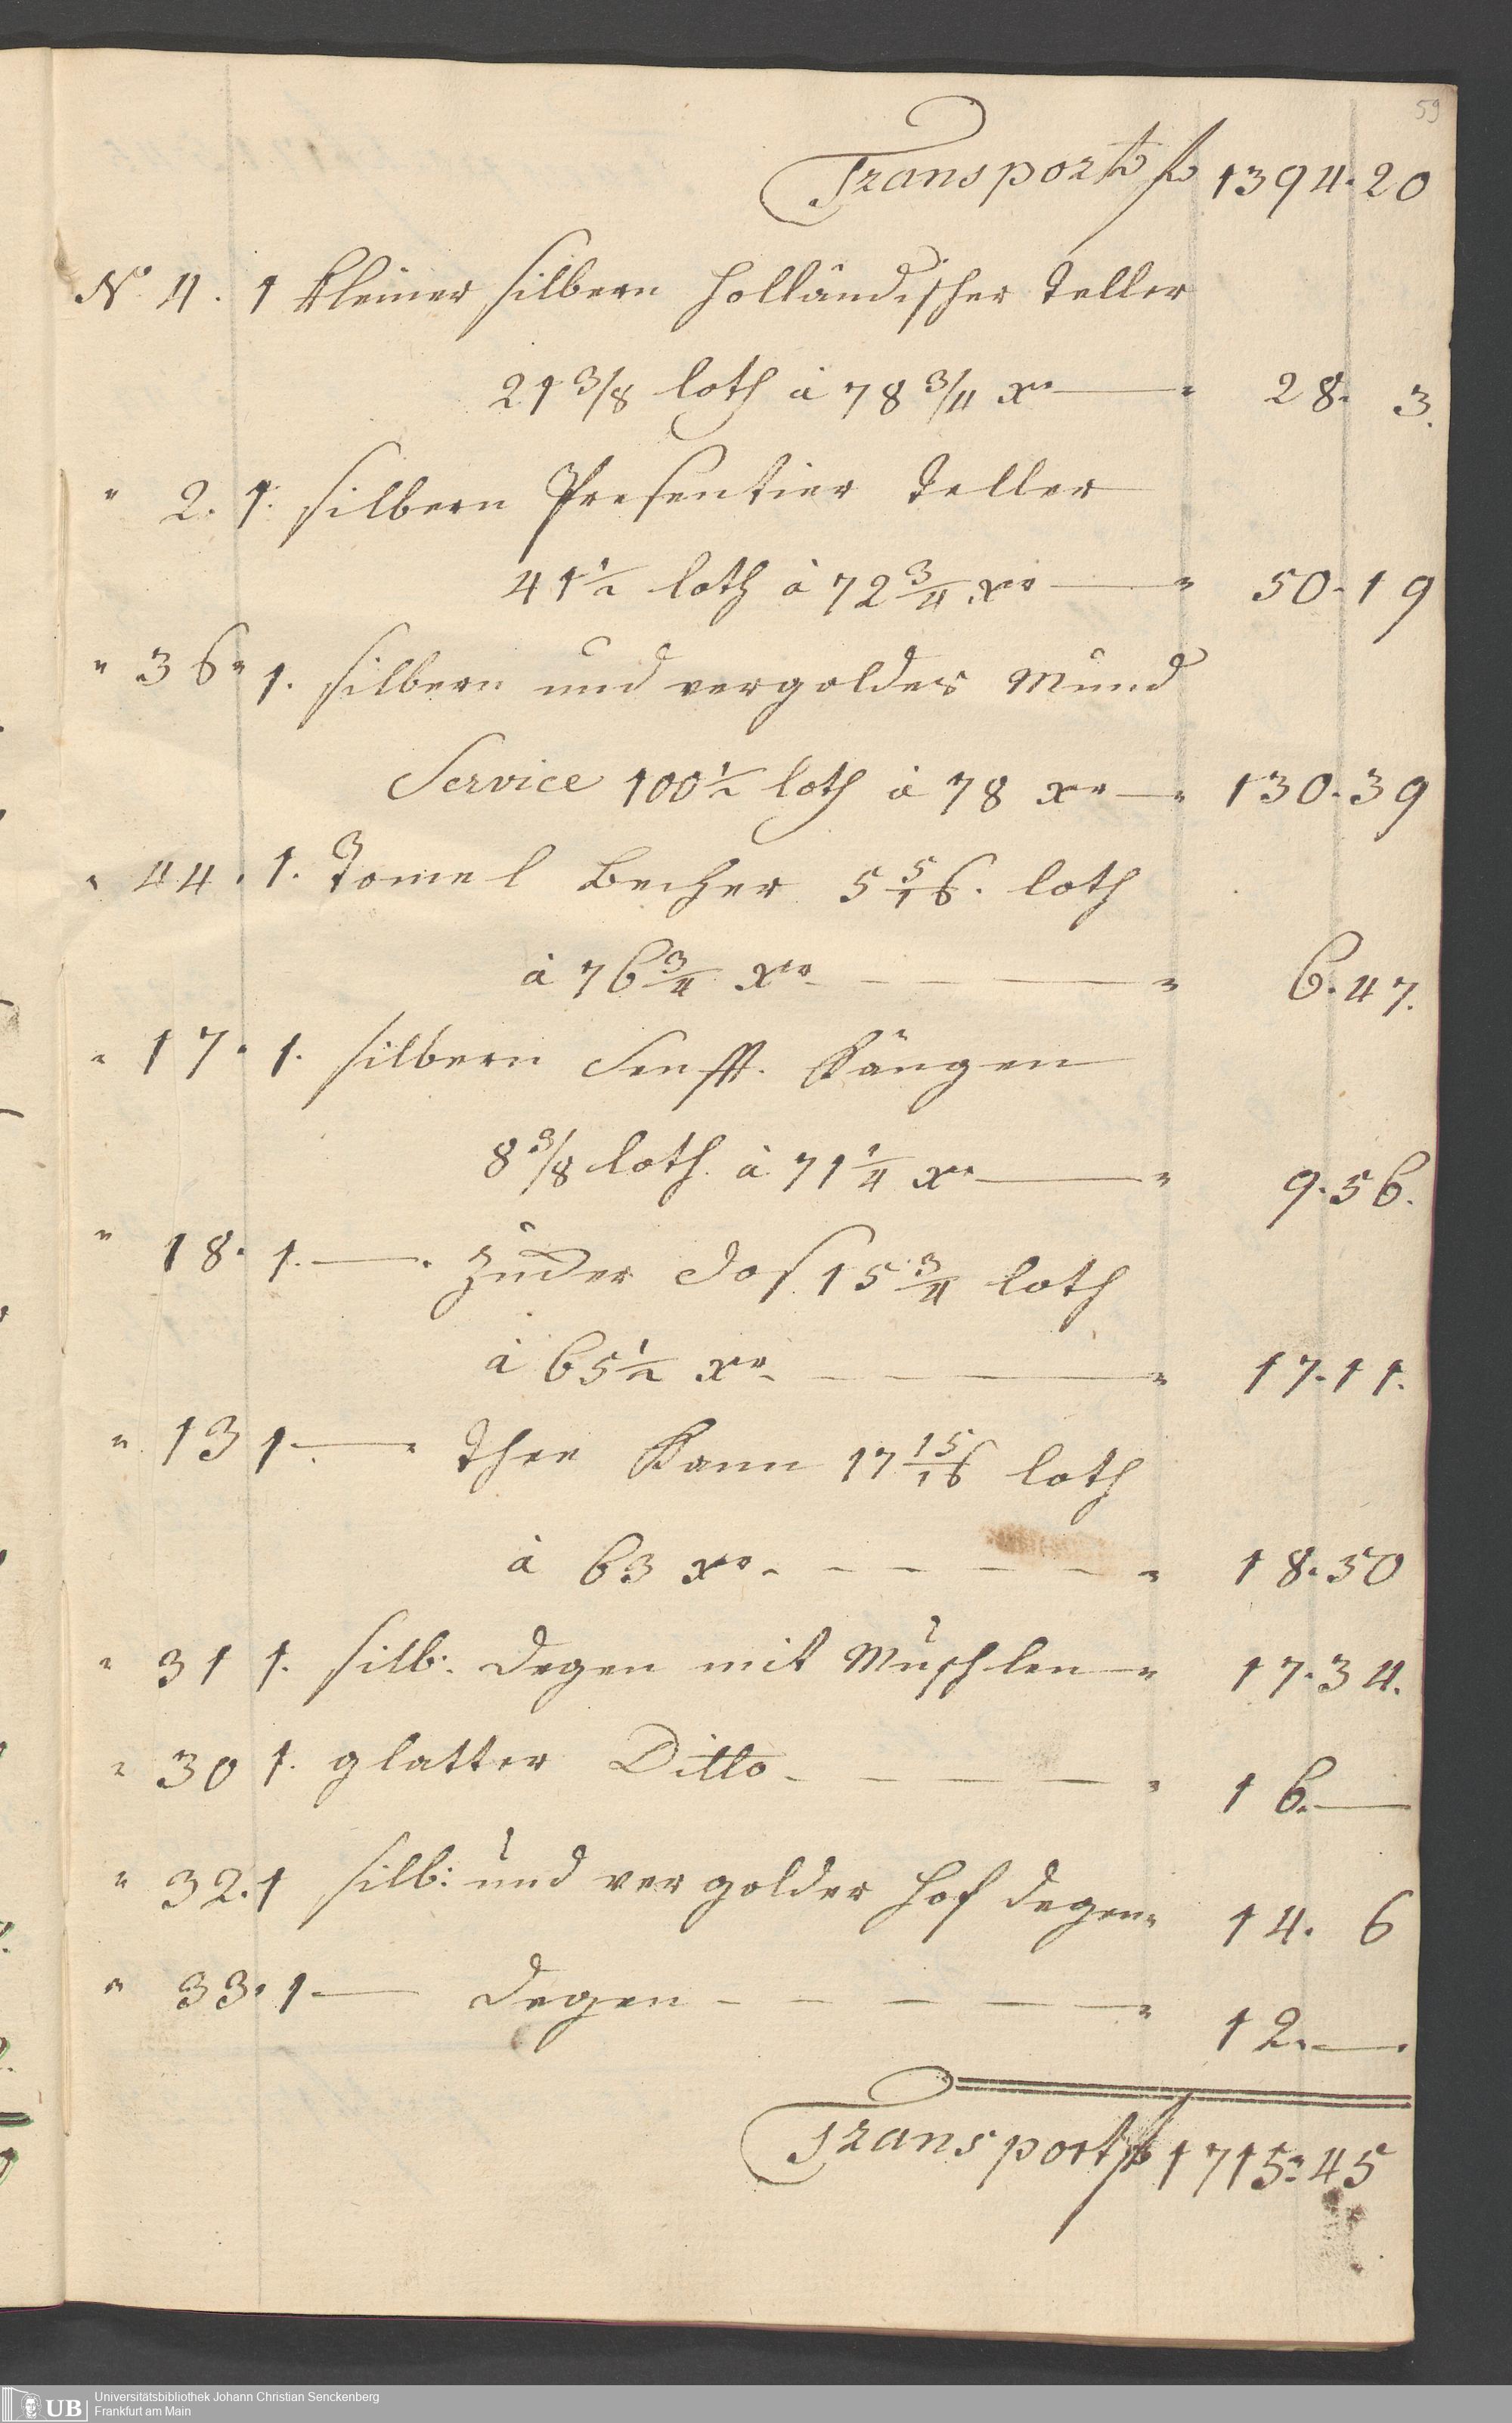 59
Transport f 1394.20
No 4. 1 kleiner silbern holländischer Teller
21 3/8 loth à 78 3/4 xr — " 28. 3.
" 2. 1. silbern Presentier Teller
41 1/2 loth à 72 3/4 xr — " 50.19
" 36 " 1. silbern und vergoldes Mund
Service 100 1/2 loth à 78 xr — " 130.39
" 44. 1. Tomel Becher 5 5/16. loth
à 76 3/4 xr — " 6.47.
" 17. 1. silbern Senfft. Kängen
8 3/8 loth à 71 1/4 xr — " 9.56.
" 18. 1. — Zuder Dos 15 3/4 loth
à 65 1/2 xr — " 17.11.
" 13 1. — Thee Kann 17 15/16 loth
à 63 xr — " 18.50
" 31 1. silb: Degen mit Muschlen — " 17.34.
" 30 1. glatter Ditto — " 16.—
" 32. 1 silb: und vergolder Hof Degen " 14. 6
" 33. 1 — Degen — " 12.—.
Transport f 1715:45
UB
Universitätsbibliothek Johann Christian Senckenberg
Frankfurt am Main